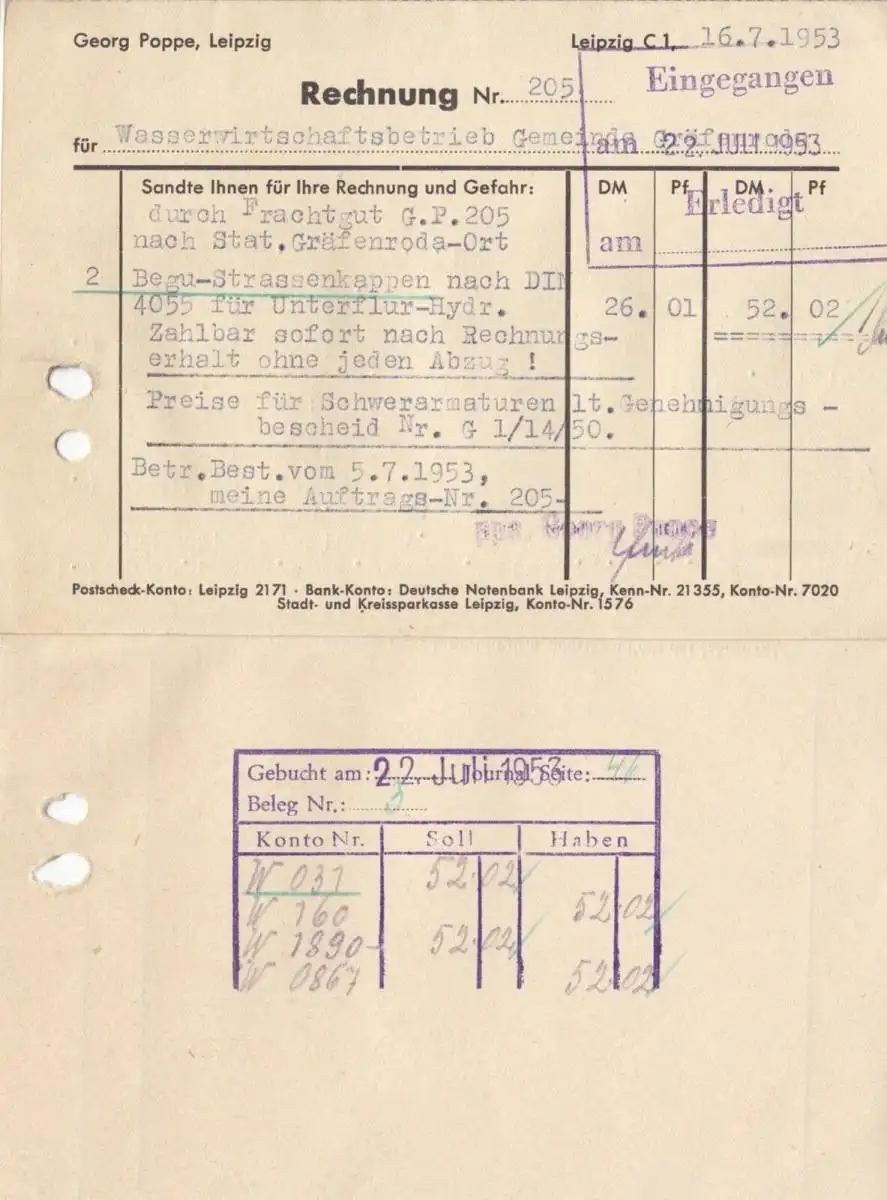 Georg Poppe, Leipzig
Leipzig C 1, 16.7.1953
Eingegangen
am 22. JULI 1953
Erledigt
am
Rechnung Nr. 205
für Wasserwirtschaftsbetrieb Gemeinde Gräfenroda
Sandte Ihnen für Ihre Rechnung und Gefahr: DM Pf DM Pf
durch Frachtgut G.P.205
nach Stat.Gräfenroda-Ort
2 Begu-Strassenkappen nach DIN
4055 für Unterflur-Hydr. 26. 01 52. 02
Zahlbar sofort nach Rechnungs-
erhalt ohne jeden Abzug !
Preise für Schwerarmaturen lt.Genehmigungs -
bescheid Nr. G 1/14/50.
Betr.Best.vom 5.7.1953,
meine Auftrags-Nr. 205-
ppa. Georg Poppe
Postscheck-Konto: Leipzig 2171 · Bank-Konto: Deutsche Notenbank Leipzig, Kenn-Nr. 21 355, Konto-Nr. 7020
Stadt- und Kreissparkasse Leipzig, Konto-Nr. 1576
Gebucht am: 22. Juli 1953 Journal Seite:
Beleg Nr.: 3
Konto Nr. Soll Haben
W 031 52.02
W 160 52.02
W 1890- 52.02
W 0867 52.02